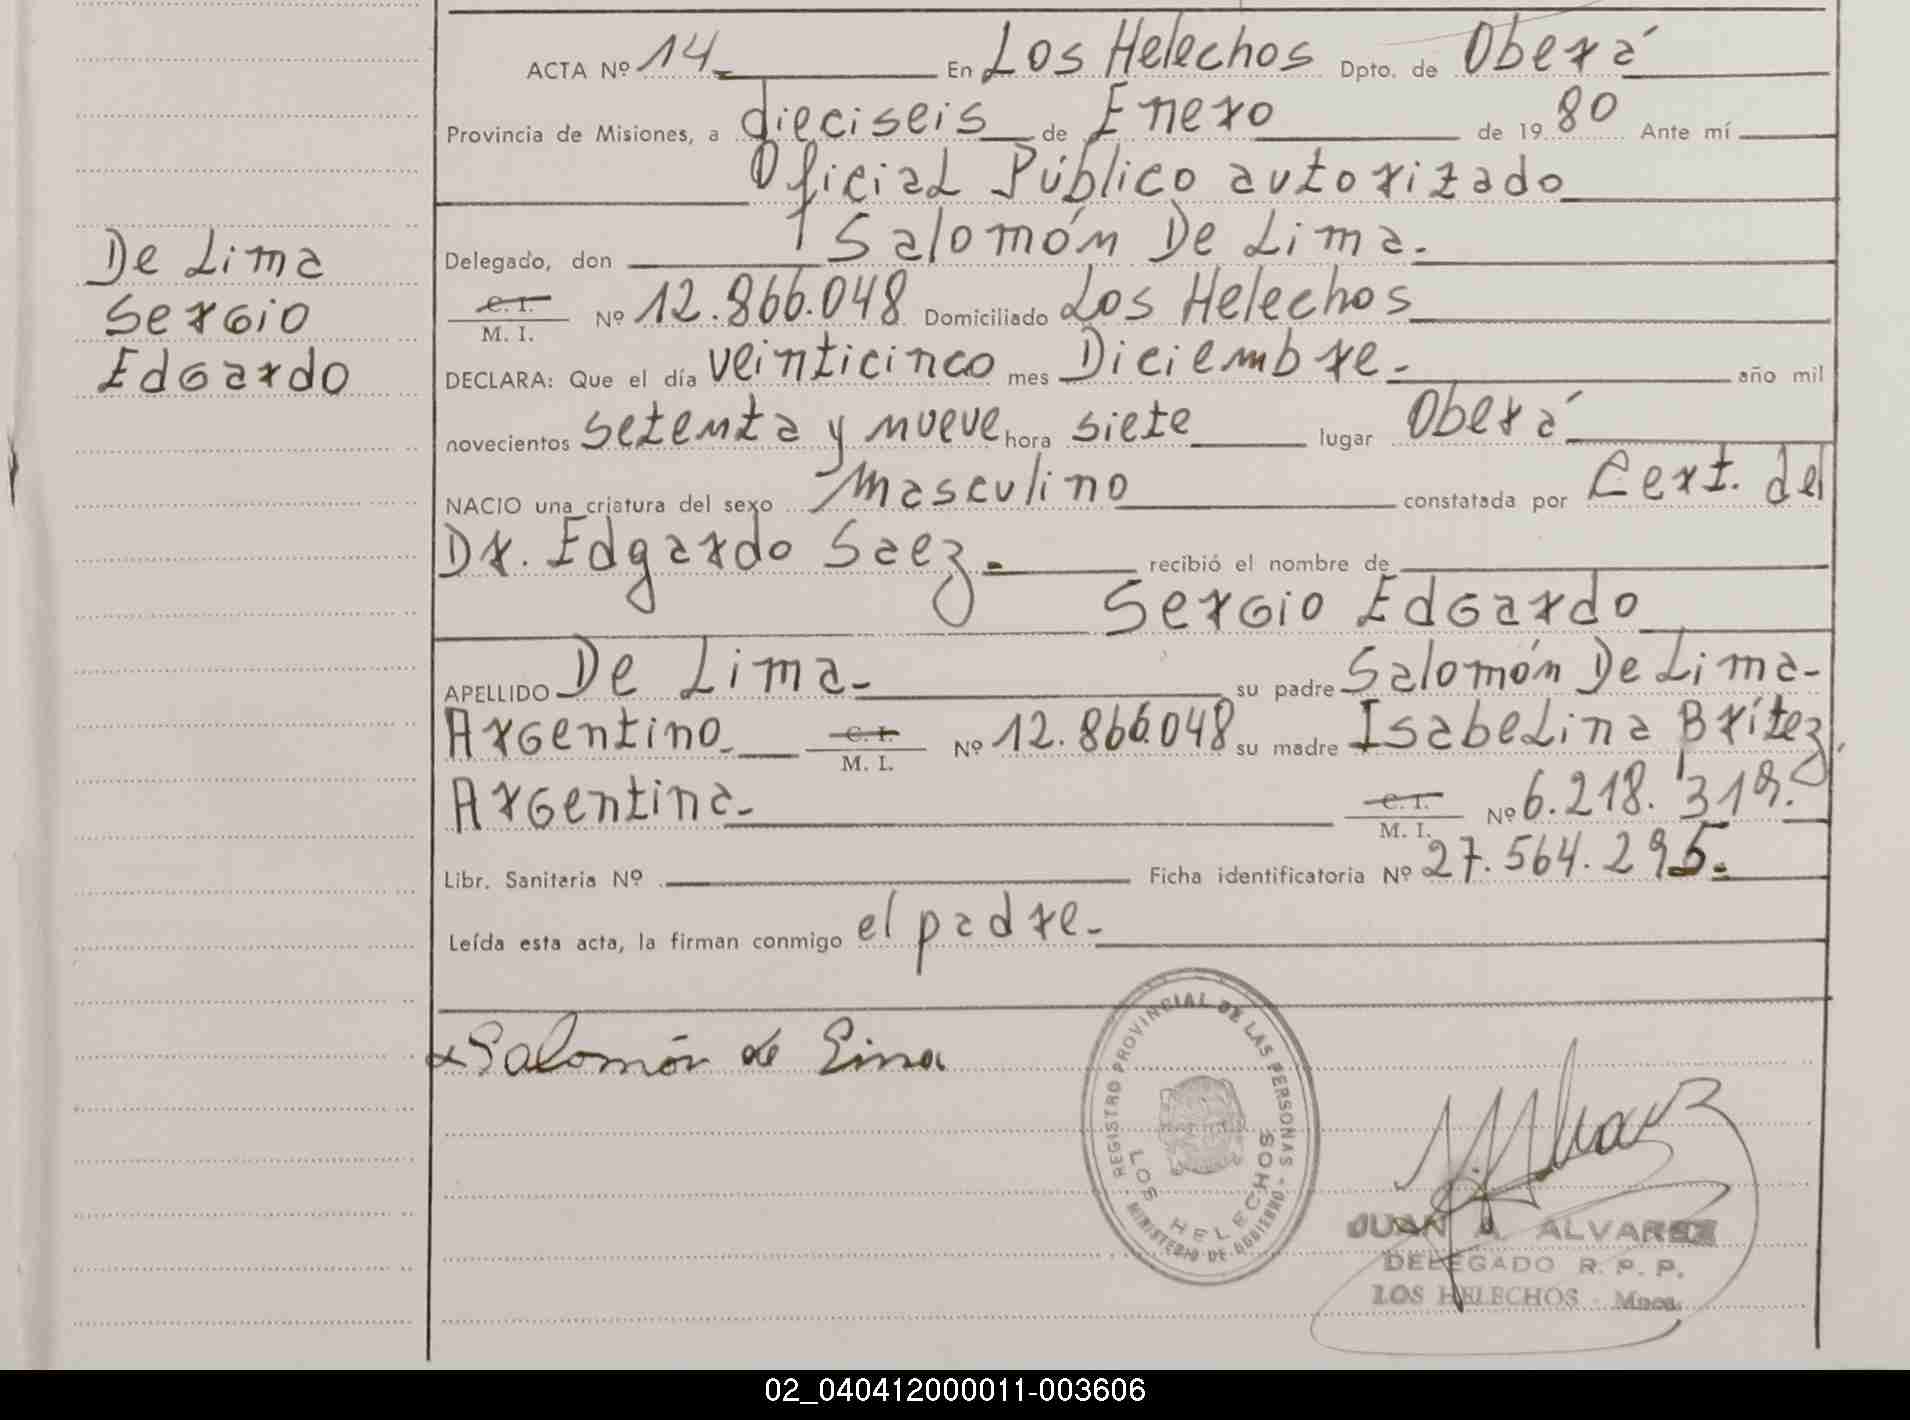 ACTA Nº 14 En Los Helechos Dpto. de Oberá
Provincia de Misiones, a dieciseis de Enero de 19 80 Ante mí
Oficial Público autorizado
Delegado, don Salomón De Lima.
C. I. / M. I. Nº 12.866.048 Domiciliado Los Helechos
DECLARA: Que el día veinticinco mes Diciembre. año mil
novecientos setenta y nueve hora siete lugar Oberá
NACIO una criatura del sexo Masculino constatada por Cert. del
Dr. Edgardo Saez. recibió el nombre de
Sergio Edgardo
APELLIDO De Lima su padre Salomón De Lima
Argentino C. I. / M. I. Nº 12.866.048 su madre Isabelina Brítez,
Argentina C. I. / M. I. Nº 6.218.319.
Libr. Sanitaria Nº Ficha identificatoria Nº 27.564.295.
Leída esta acta, la firman conmigo el padre
De Lima
Sergio
Edgardo
Salomón de Lima
REGISTRO PROVINCIAL DE LAS PERSONAS
MINISTERIO DE GOBIERNO
LOS HELECHOS
JUAN A. ALVAREZ
DELEGADO R. P. P.
LOS HELECHOS - Mnes.
02_040412000011-003606